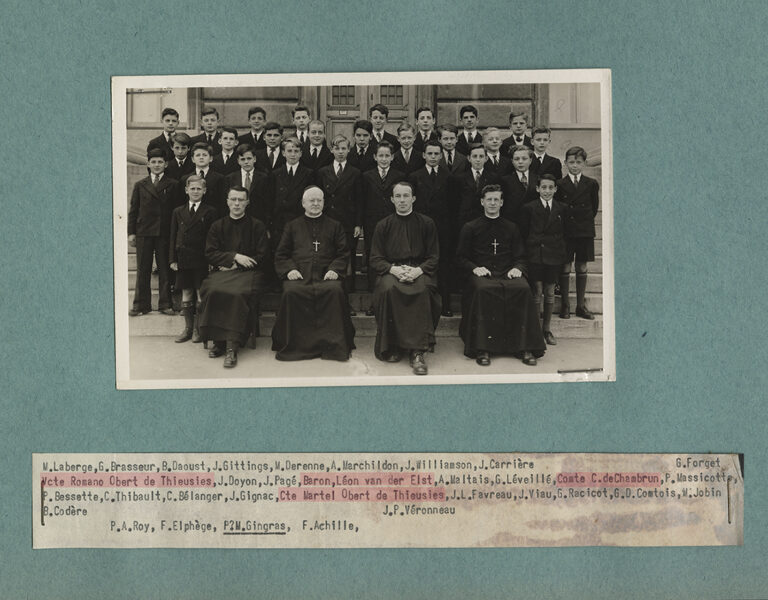 M.Laberge,G.Brasseur,B.Daoust,J.Gittings,M.Derenne,A.Marchildon,J.Williamson,J.Carrière G.Forget
Vcte Romano Obert de Thieusies,J.Doyon,J.Pagé,Baron,Léon van der Elst,A.Maltais,G.Léveillé,Comte C.deChambrun,P.Massicotte,
P.Bessette,C.Thibault,C.Bélanger,J.Gignac,Cte Martel Obert de Thieusies,J.L.Favreau,J.Viau,G.Racicot,G.D.Comtois,W.Jobin
B.Codère J.P.Véronneau
P.A.Roy, F.Elphège, P?M.Gingras, F.Achille,